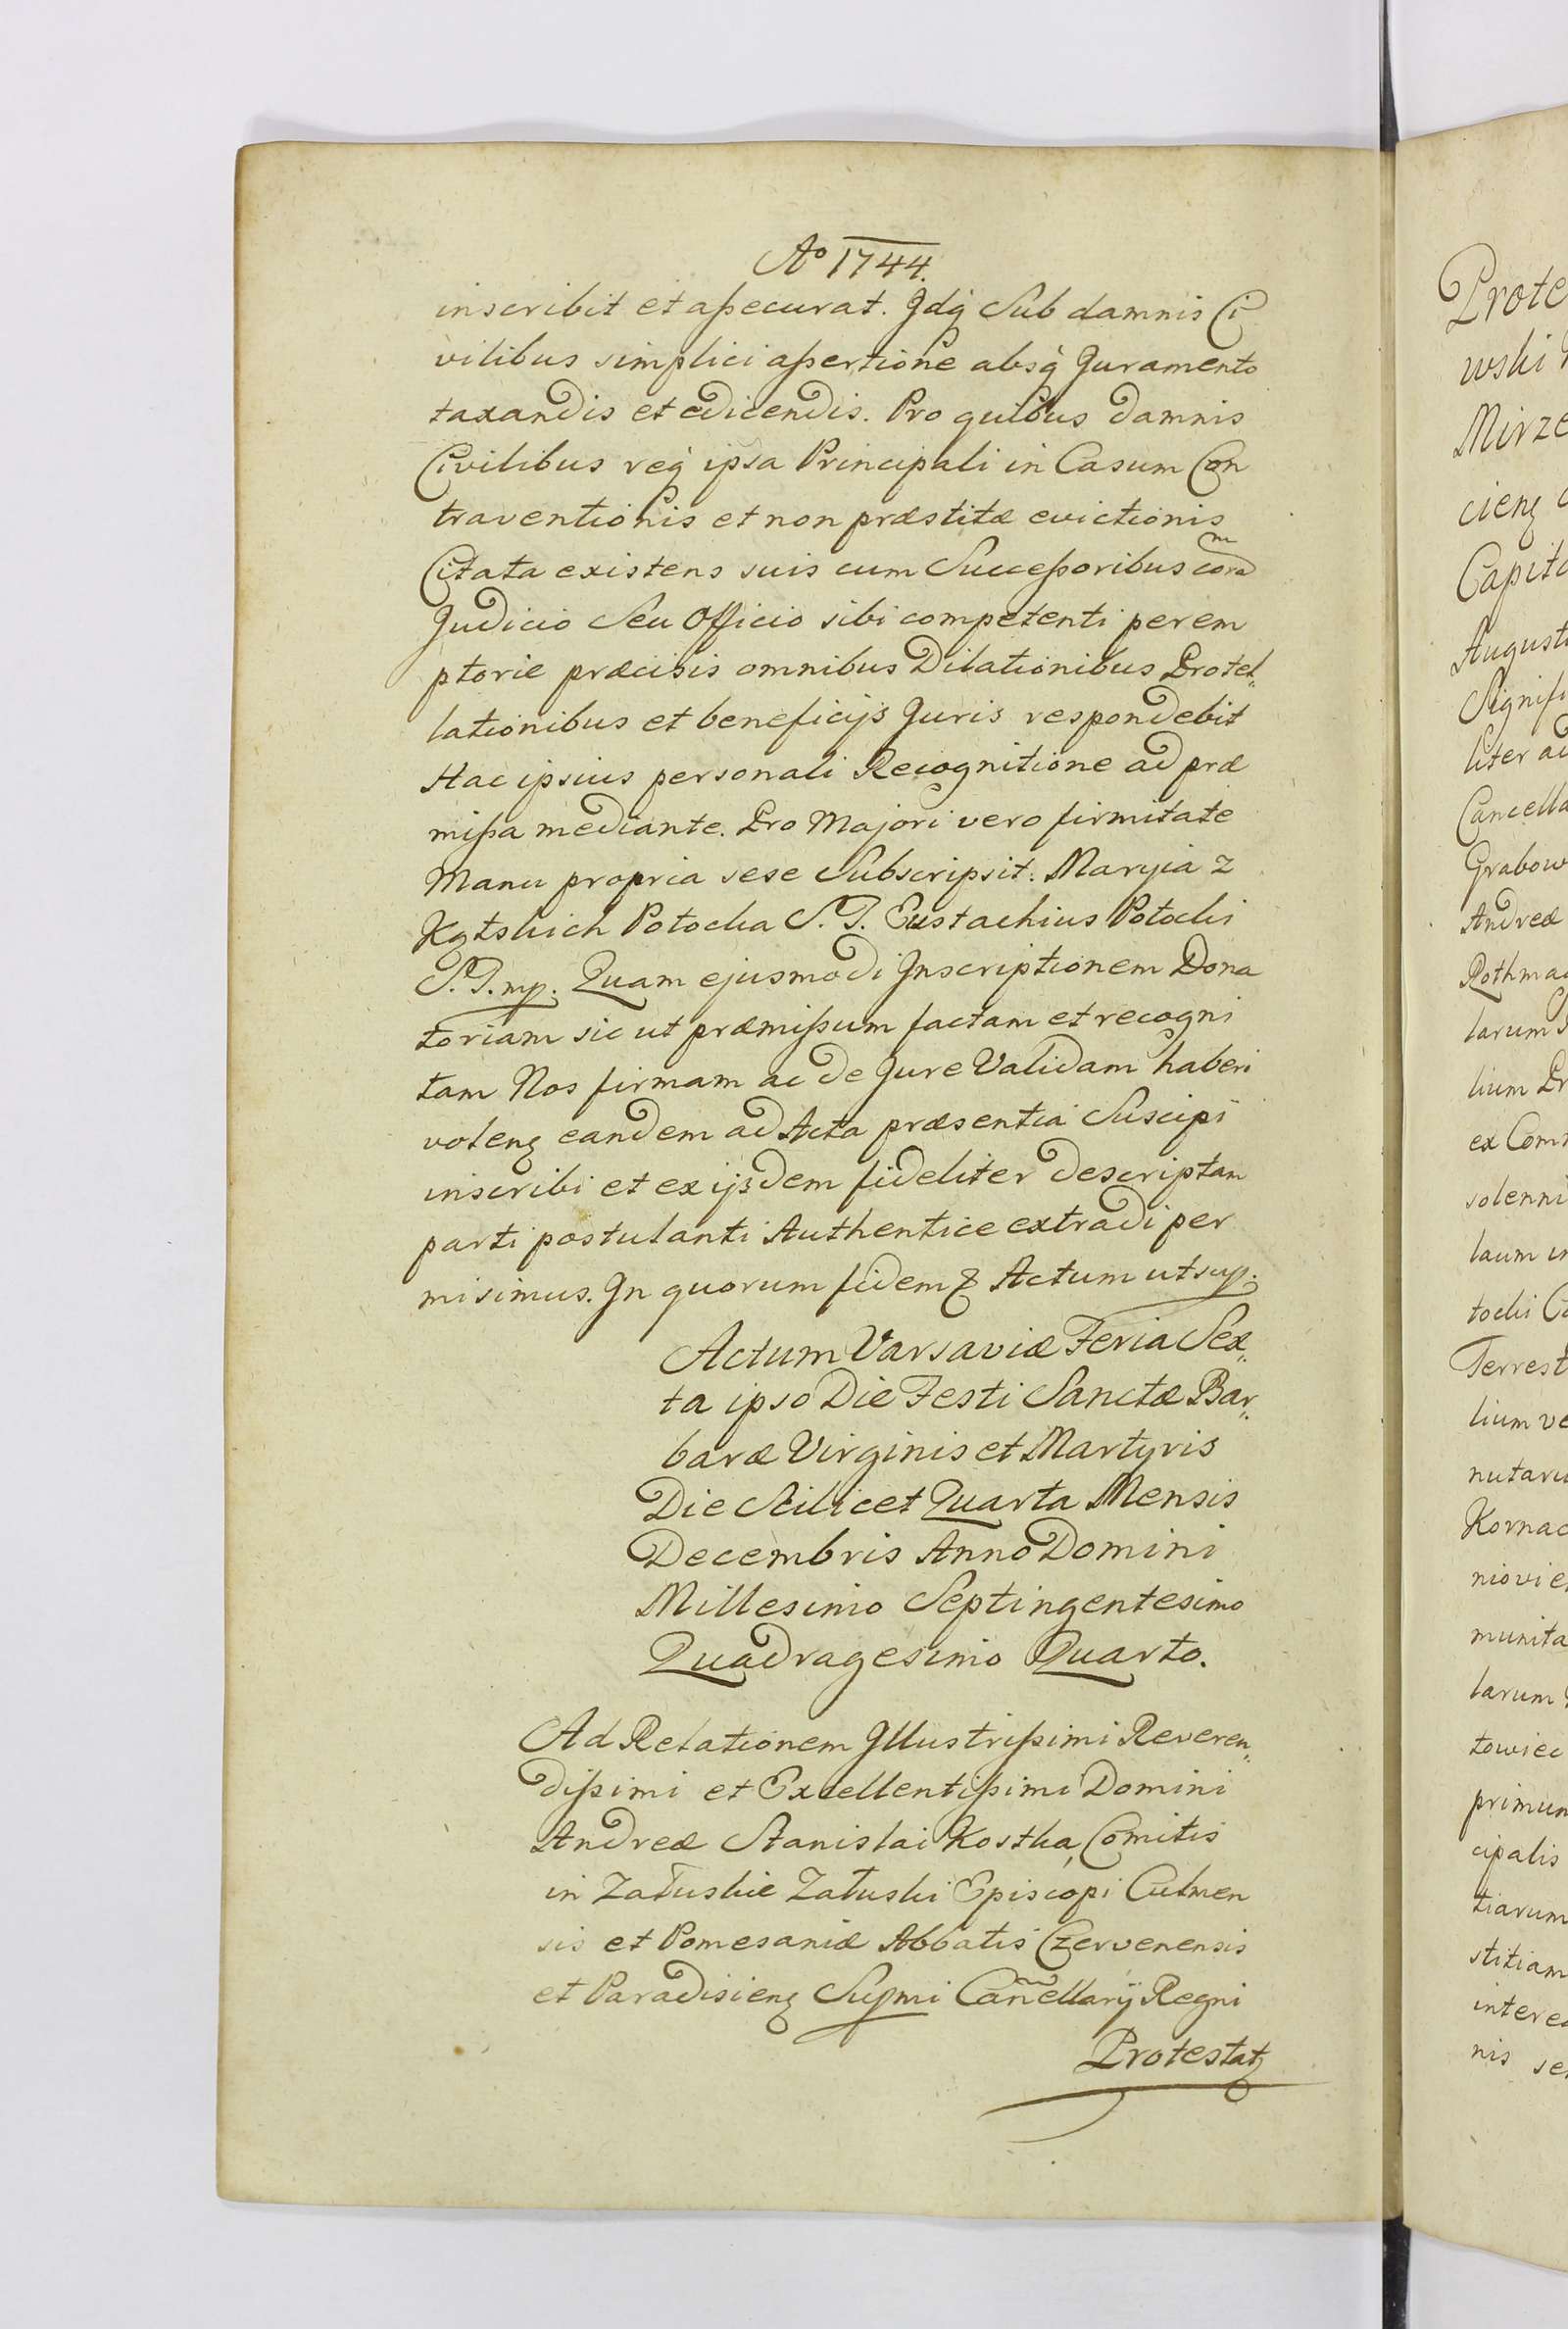 Ao 1744.
inscribit et assecurat. Idq Sub damnis Ci
vilibus simplici assertione absq Juramento
taxandis et edicendis. Pro quibus damnis
Civilibus req ipsa Principali in Casum Con
traventionis et non præstitæ evictionis
Citata existens suis cum Successoribus coram
Judicio Seu Officio sibi competenti perem
ptorie præcisis omnibus Dilationibus Protel„
lationibus et beneficijs Juris respondebit
Hac ipsius personali Recognitione ad præ
missa mediante. Pro Majori vero firmitate
Manu propria sese Subscripsit. Maryia z
Kątskich Potocka S. P. Eustachius Potocki
S. P. mp. Quam ejusmodi Inscriptionem Dona
toriam sic ut præmissum factam et recogni
tam Nos firmam ac de Jure Validam haberi
voleng eandem ad Acta præsentia Suscipi
inscribi et ex ijsdem fideliter descriptam
parti postulanti Authentice extradi per
misimus. In quorum fidem & Actum ut sup.
Actum Varsaviæ Feria Sex„
ta ipso Die Festi Sanctæ Bar„
baræ Virginis et Martyris
Die Scilicet Quarta Mensis
Decembris Anno Domini
Millesimo Septingentesimo
Quadragesimo Quarto.
Ad Relationem Illustrissimi Reveren„
dissimi et Excellentissimi Domini
Andreæ Stanislai Kostka Comitis
in Załuskie Załuski Episcopi Culmen
sis et Pomesaniæ Abbatis Czervenensis
et Paradisieng Supmi Cañellarij Regni
Protestatg
Prote
wski
Mirze
cieng
Capit
August
Signifi
liter ad
Cancella
Grabow
Andreæ
Rothma
larum
lium Pr
ex Com
solenni
laum in
tocki
Terrest
lium ve
nutaru
Kornac
niovie
munita
larum
towiec
primum
cipalis
tiarum
stitiam
intere
nis se